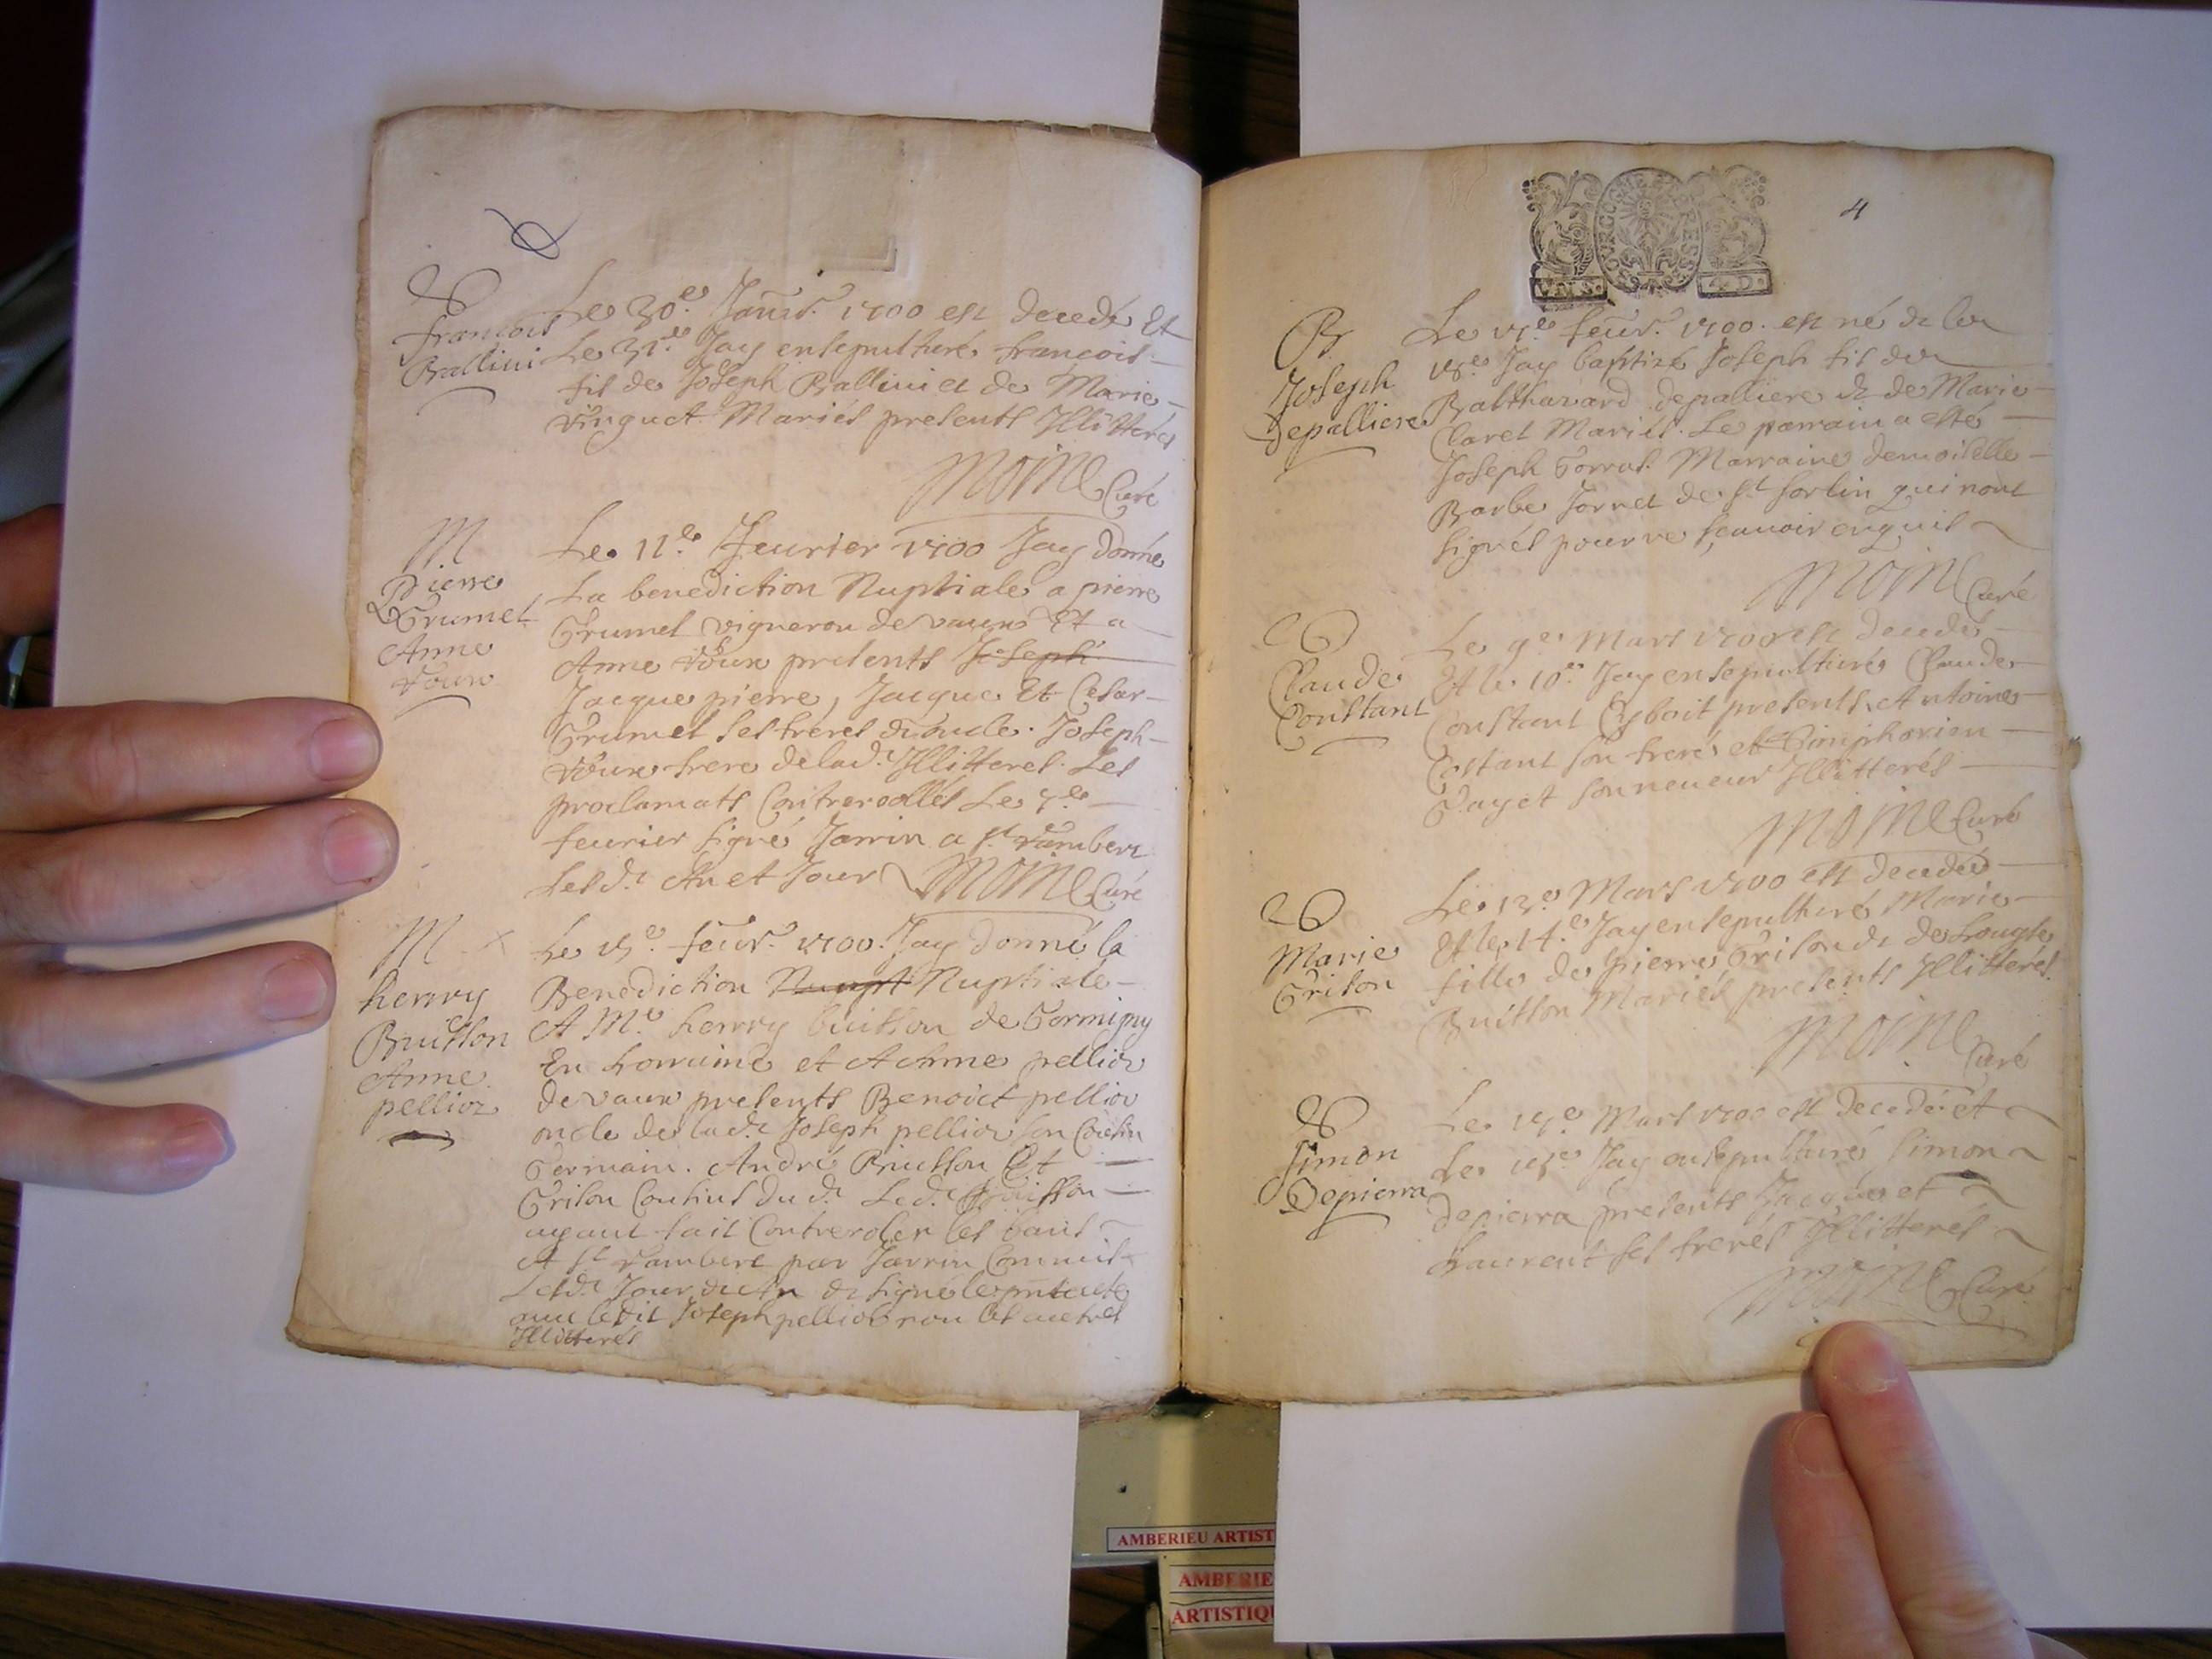 François
Ballini
Le 30e Janvr. 1700 est decedé Et
Le 31e Jay ensepulturé françois
fil de Joseph Ballini et de Marie
vinguet Mariés presents Illitterés
Moine Curé
M
Pierre
Grumet
Anne
Le 11e feurier 1700 Jay donné
La benediction Nuptiale a pierre
Grumet vigneron de vaux Et a
Anne presents Joseph
Jacque pierre, Jacque Et Cesar
Grumet ses freres oncle. Joseph
frere de lad. Illitteres. Les
proclamats Contrerollés Le 7e
feurier signé Jarrin a st Rambert
Lesd. An et Jour Moine Curé
M
henry
Buisson
Anne
pellioz
Le feur. 1700. Jay donné la
Benediction Nuptiale
A Me henry buisson de Germigny
En Lorraine et A Anne pellioz
de vaux presents Benoict pellioz
oncle de lad. Joseph pellioz son Cousin
Germain. André Buisson Et
Grison Cousins dud. Led. Buisson
ayant fait Contreroler les bans
A st Rambert par Jarrin Commis
Lesd. Jour et An signé
auec ledit Joseph pellioz non les autres
Illitterés
4
BOURGOGNE BRESSE
B
Joseph
Depalliere
Le feur. 1700. est né et le
Jay baptizé Joseph fil de
Balthazard depalliere et de Marie
Claret Mariés. Le parrain a esté
Joseph Gorraz Marraine demoiselle
Barbe Jornet de st sorlin qui nont
signés pour ne sçauoir enquis
Moine Curé
Claude
Constant
Le 9e Mars 1700 est decedé
Et le 10e Jay ensepulturé Claude
Constant Cyboit presents Antoine
Costant son frere et Simphorien
Gayet son neueur Illitterés
Moine Curé
Marie
Grison
Le 13e Mars 1700 est decedée
Et le 14e Jay ensepulturé Marie
fille de pierre Grison et de
Buisson Mariés presents Illitterés
Moine Curé
Simon
Depierra
Le Mars 1700 est decedé et
Le Jay ensepulturé Simon
depierra presents Jacques et
Laurent ses freres Illitterés
Moine Curé
AMBERIEU ARTIST
AMBERIE
ARTISTIQU